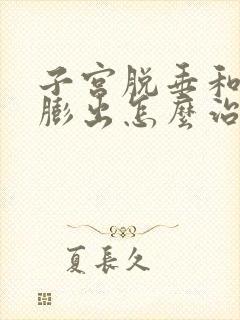 子宮脱垂和
膨出怎麼治
夏長久